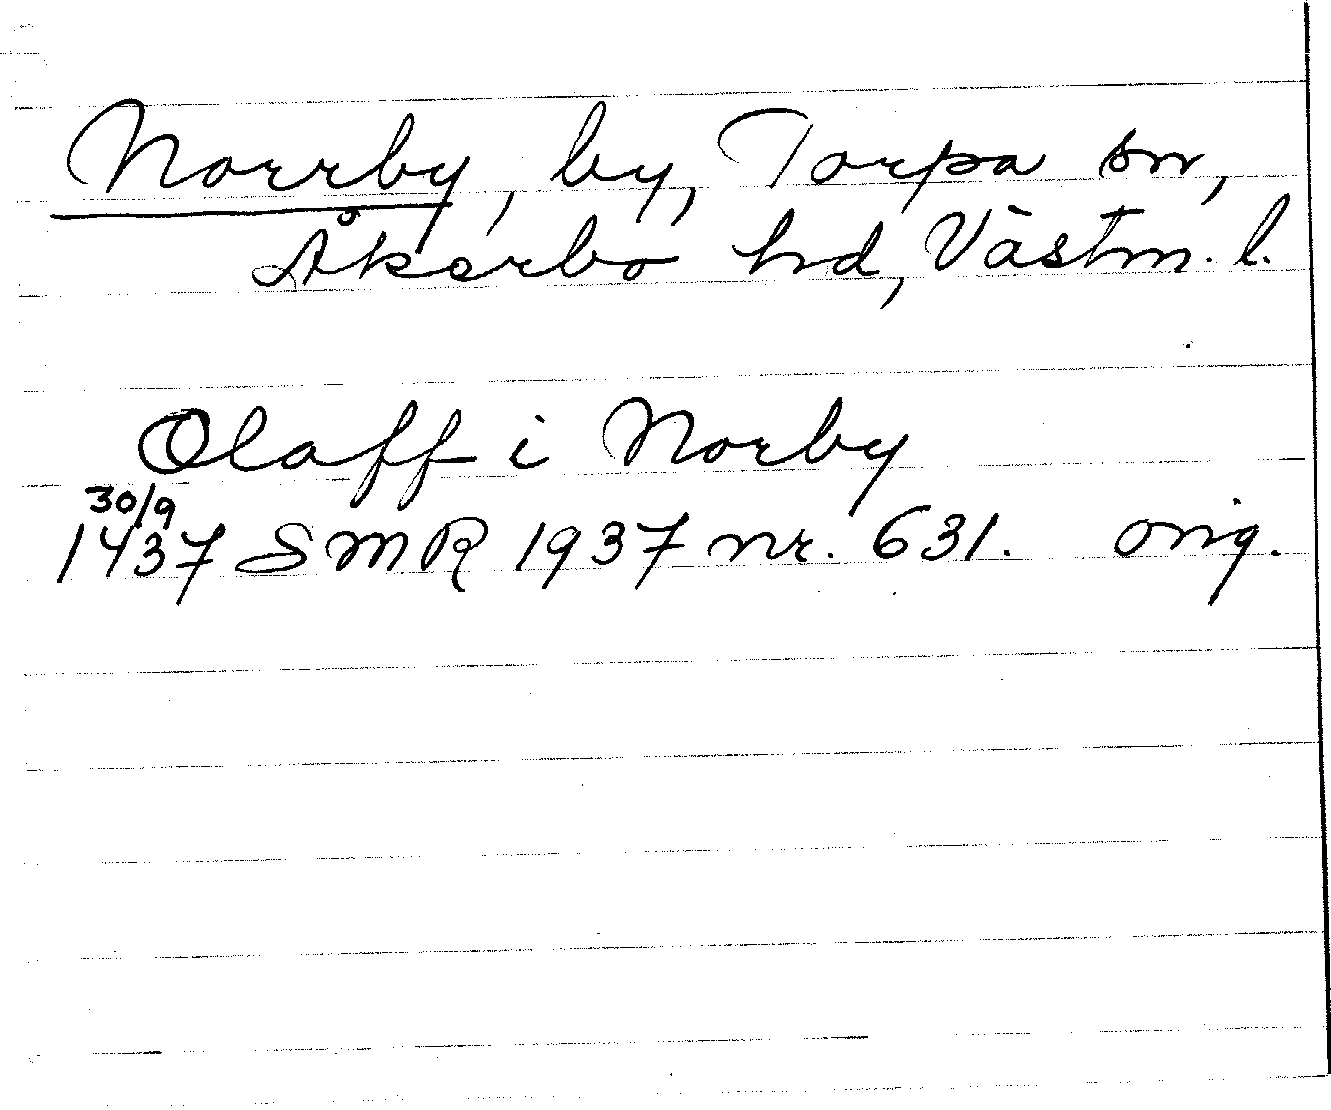 Norrby, by, Torpa sn,
Åkerbo hd, Västm. l.
Olaff i Norby
30/9
1437 SMR 1937 nr. 631. orig.